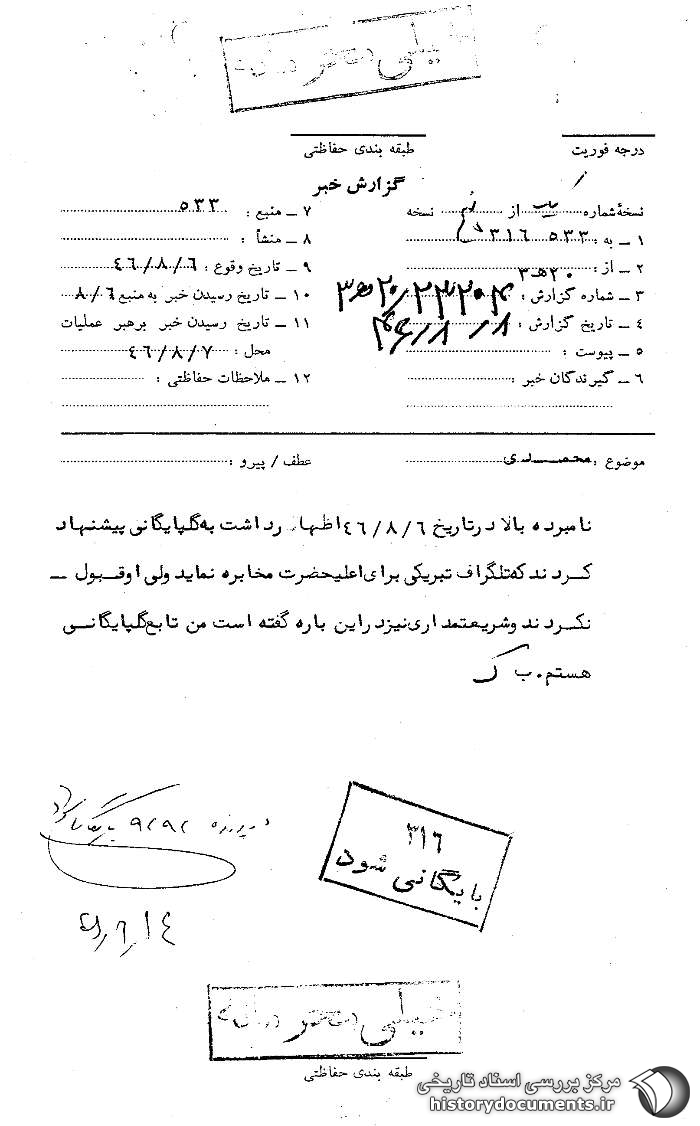 خیلی محرمانه
درجه فوریت
طبقه بندی حفاظتی
گزارش خبر
نسخهٔ شماره از نسخه
۱ ـ به : ۵۳۳ ۳۱۶
۲ ـ از : ۲۰ هـ ۳
۳ ـ شماره گزارش :
۴ ـ تاریخ گزارش : ۴۶/۸/۸
۵ ـ پیوست :
۶ ـ گیرندگان خبر :
۷ ـ منبع : ۵۳۳
۸ ـ منشأ :
۹ ـ تاریخ وقوع : ۴۶/۸/۶
۱۰ ـ تاریخ رسیدن خبر به منبع ۸/۶
۱۱ ـ تاریخ رسیدن خبر برهبر عملیات
محل : ۴۶/۸/۷
۱۲ ـ ملاحظات حفاظتی :
موضوع : محمدی
عطف / پیرو :
نامبرده بالا در تاریخ ۴۶/۸/۶ اظهار داشت به گلپایگانی پیشنهاد
کردند که تلگراف تبریکی برای اعلیحضرت مخابره نماید ولی او قبول ـ
نکردند و شریعتمداری نیز در این باره گفته است من تابع گلپایگانی
هستم . ب ک
در پرونده ۹۲۹۲ بایگانی شود
۳۱۶
بایگانی شود
خیلی محرمانه
طبقه بندی حفاظتی
مرکز بررسی اسناد تاریخی
historydocuments.ir